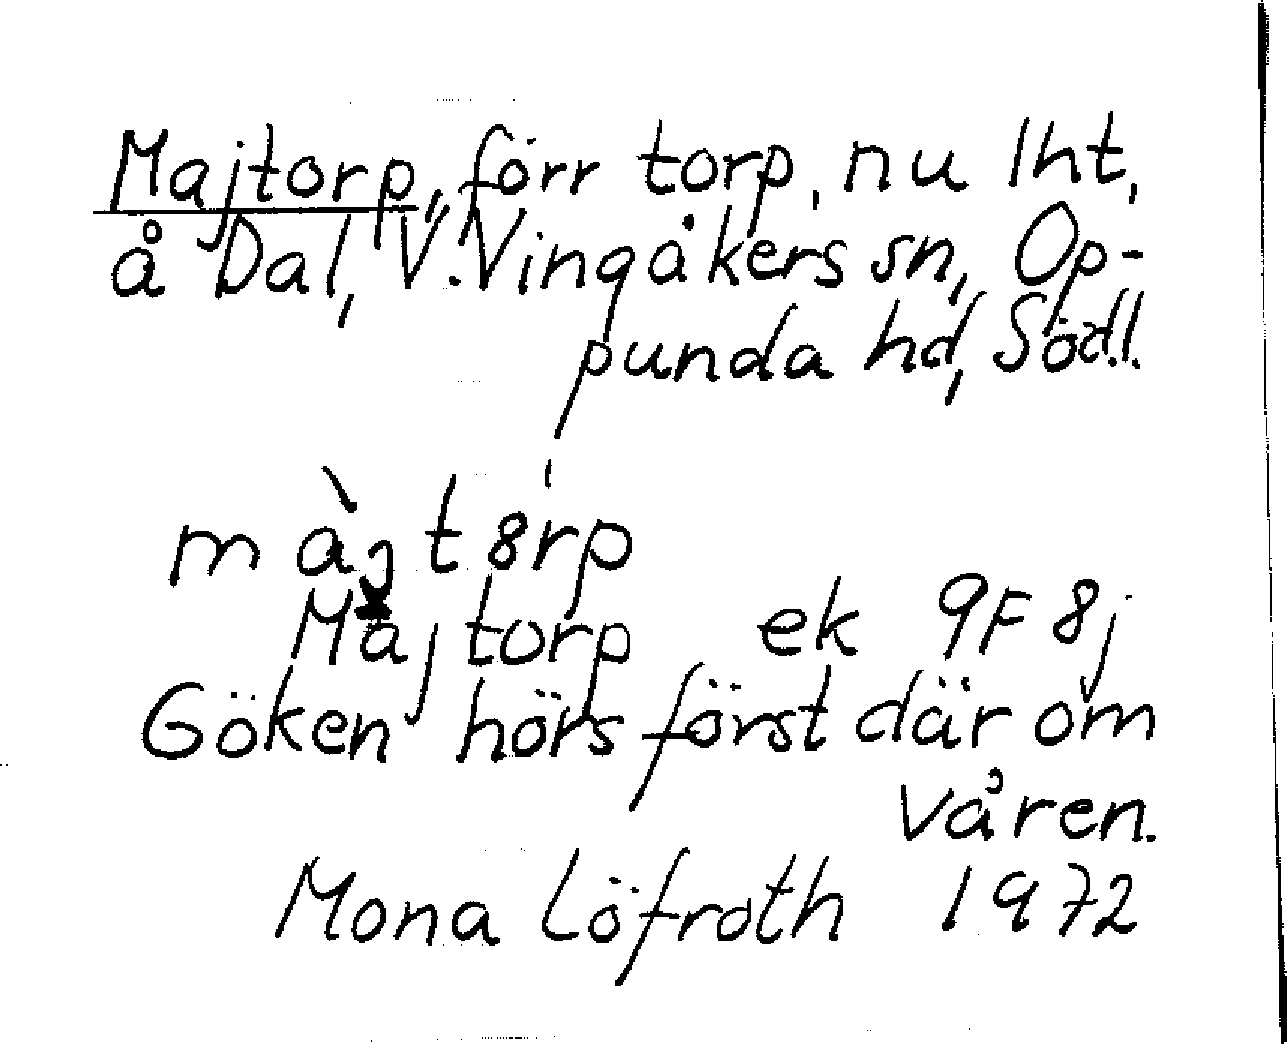 Majtorp, förr torp, nu lht,
å Dal, V. Vingåkers sn, Op-
punda hd, Södl.
màjt8rp
Majtorp ek 9F 8j
Göken hörs först där om
våren.
Mona Löfroth 1972